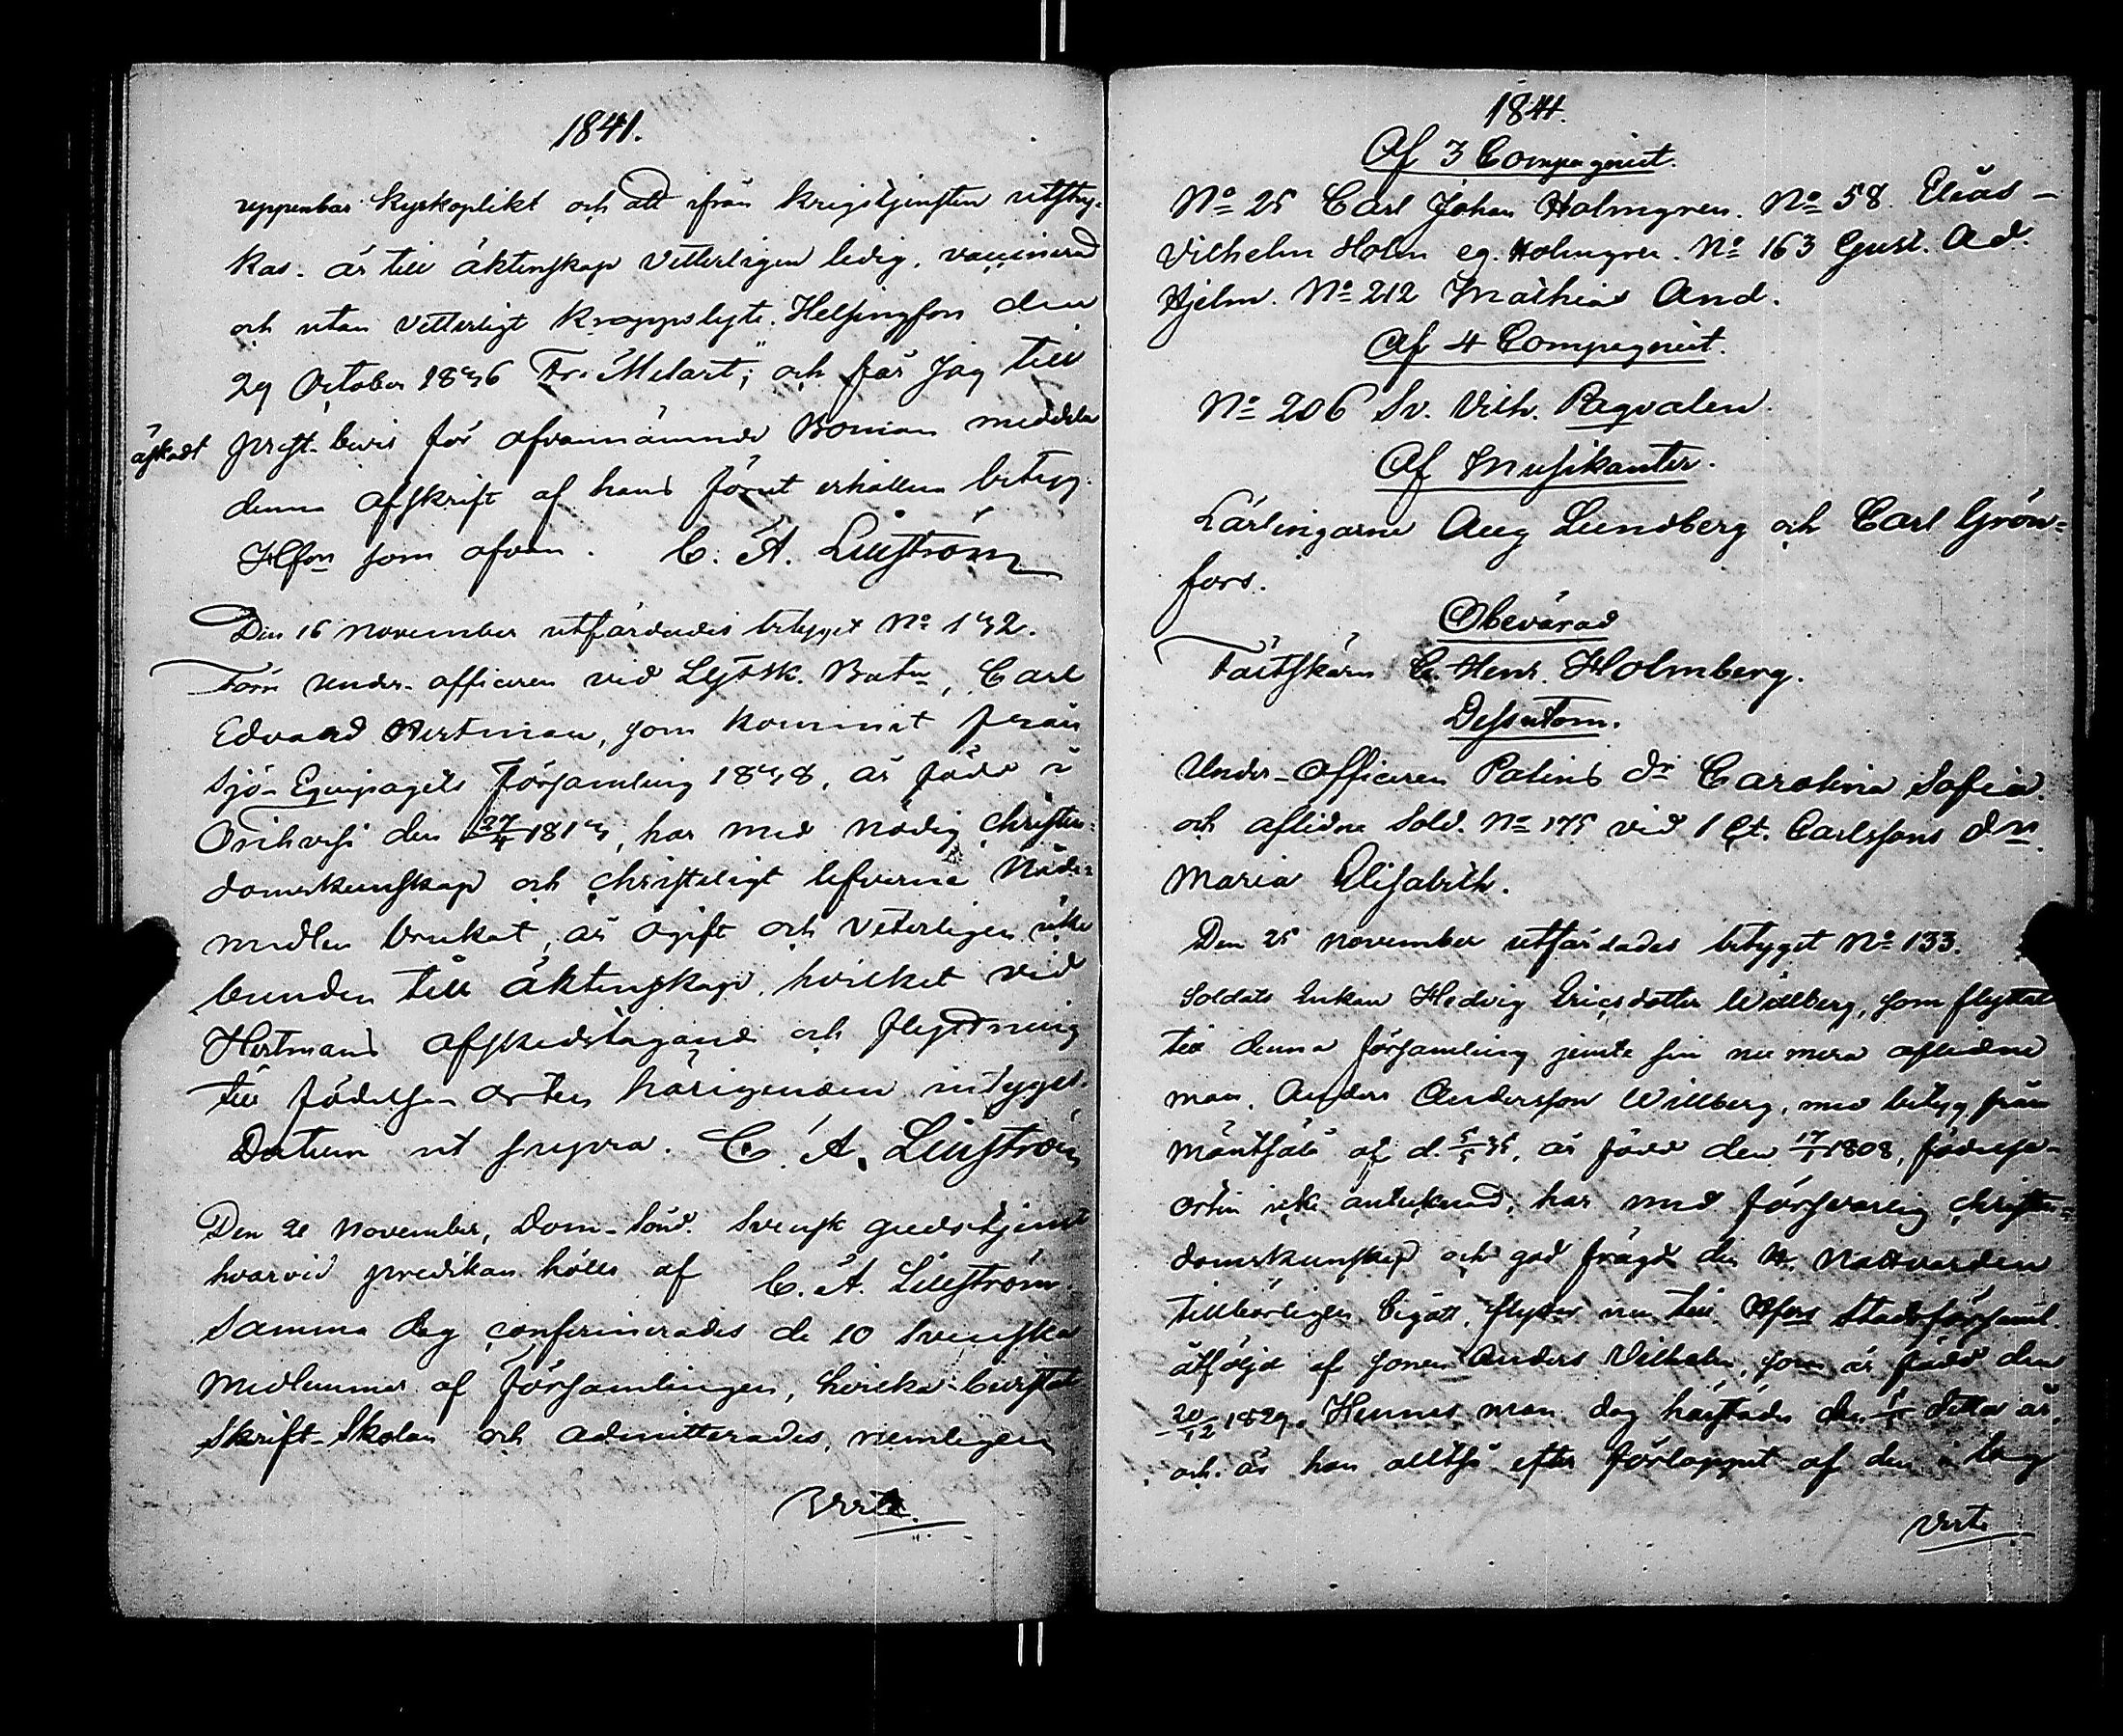 1841.
uppenbar kyrkoplikt och att ifrån krigstjensten utstry-
kas. är till äktenskap vetterligen ledig, vaccinerad
och utan vetterligt kroppslyte. Helsingfors den
29 October 1836 Fr. Melart; och får jag till
åskadt prest-bevis för ofvannämnde Boman meddela
denna afskrift af hans förut erhållna betyg.
Hfors som ofvan. C. A. Lillström
Den 16 November utfärdades betyget No 132.
Förn Under-officeren vid L. Skarpsk. Batn, Carl
Edvard Hertman, som kommit från
Sjö-Equipagets Församling 1838, är född i
Orihvesi den 27/4 1813, har med nödig christen-
domskunskap och christeligt lefverne Nåde-
medlen brukat, är ogift och veterligen icke
bunden till äktenskap, hvilket vid
Hertmans afskedstagande och flyttning
till födelse-orten härigenom intygas.
Datum ut supra. C. A. Lillström
Den 21 November, Dom-Sönd. Svensk gudstjenst
hvarvid predikan hölls af C. A. Lillström.
Samma dag confirmerades de 10 Svenska
medlemmar af Församlingen, hvilka bevistat
Skrift-Skolan och admitterades, nemligen
Verte.
1841.
Af 3 Compagniet.
No 25 Carl Johan Holmgren. No 58 Elias-
Vilhelm Holm eg. Holmgren. No 163 Gust. Ad.
Hjelm. No 212 Mathias And.
Af 4 Compagniet.
No 206 Sv. Vilh. Pagvalen.
Af Musikanter.
Lärlingarne Aug Lundberg och Carl Grön-
fors.
Obevärad
Fältskärn C. Henr. Holmberg.
Dessutom.
Under-officeren Palins dr Carolina Sofia
och aflidne Sold. No 175 vid 1 Ct. Carlssons drn
Maria Elisabeth.
Den 25 November utfärdades betyget No 133.
Soldats Enkan Hedvig Ericsdotter Willberg, som flyttat
till denna församling jemte sin nu mera aflidne
man, Anders Andersson Willberg, med betyg från
Mäntsälä af d. 5/5 35, är född den 17/1 1808, födelse-
orten icke antecknad; har med försvarlig christen-
domskunskap och god frägd den H. Nattvarden
tillbörligen begått, flyttar nu till Hfors Stadsförsaml.
åtföljd af sonen Anders Vilhelm, som är född den
20/12 1829. Hennes man dog härstädes den detta år,
och är hon alltså efter förloppet af den i lag
Verte